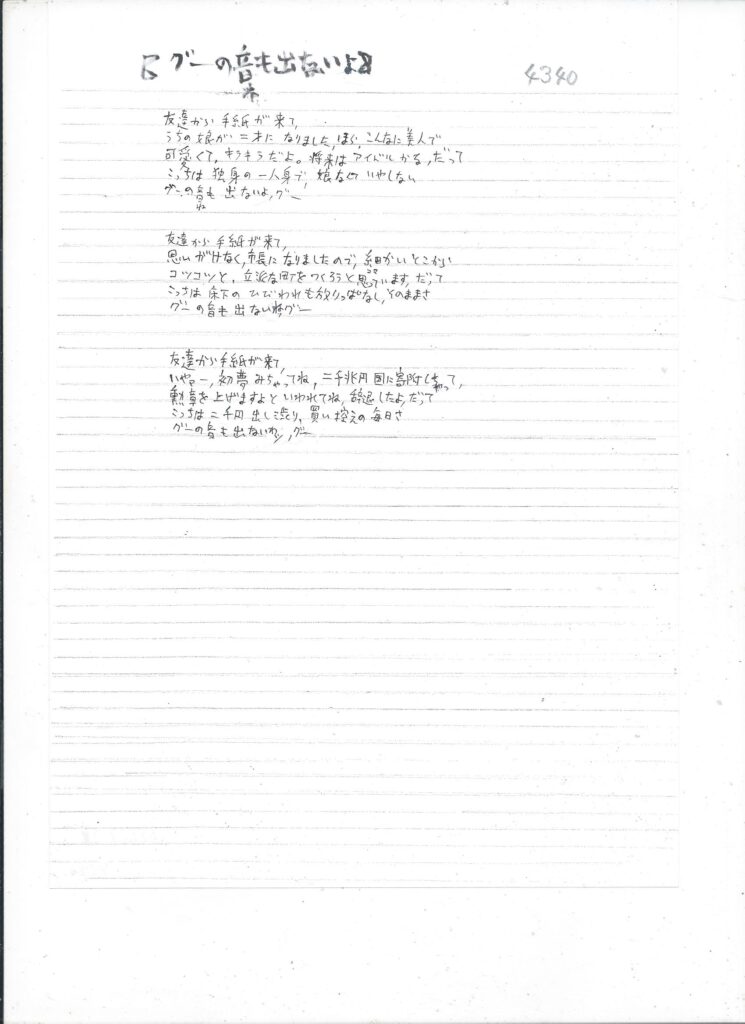 グーの音も出ないよ
ネ
4340
友達から手紙が来て、
うちの娘が二才になりました、ほら、こんなに美人で
可愛くて、キラキラだよ。将来はアイドルかな、だって
こっちは独身の一人身で、娘なぞいやしない
グーの音も出ないよ、グー
ね
友達から手紙が来て、
思いがけなく、市長になりましたので、細かいとこから
コツコツと、立派な町をつくろうと思っています、だって
こっちは床下のひびわれも放りっぱなし、そのままさ
グーの音も出ないね、グー
友達から手紙が来て、
いやー、初夢みちゃってね、二千兆円国に寄附しちゃって、
勲章を上げますよといわれてね、辞退したよ、だって
こっちは二千円出し渋り、買い控えの毎日さ
グーの音も出ないね、グー